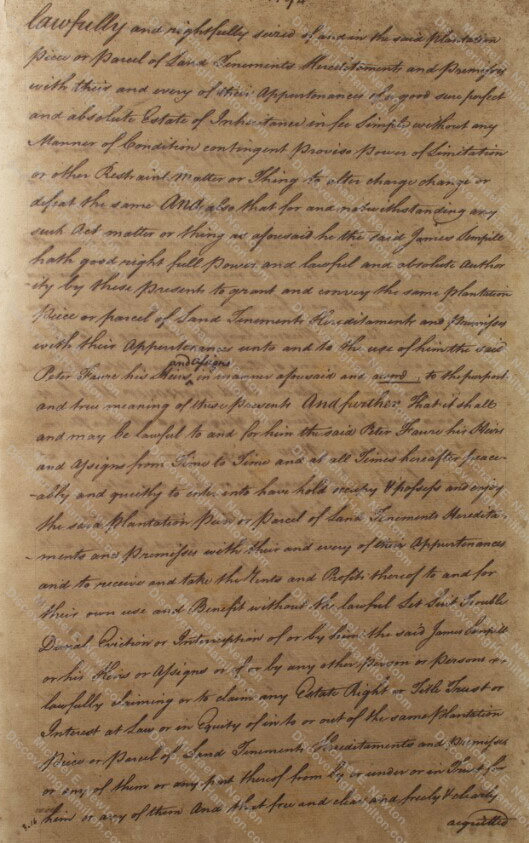 lawfully and rightfully seized of and in the said plantation
piece or Parcel of Land Tenements Hereditaments and Premisses
with their and every of their Appurtenances of a good sure perfect
and absolute Estate of Inheritance in fee Simple without any
Manner of Condition contingent Proviso Power of Limitation
or other Restraint Matter or Thing to alter charge change or
defeat the same And also that for and notwithstanding any
such Act matter or thing as aforesaid he the said James Sempill
hath good right full Power and lawful and absolute Author
ity by these Presents to grant and convey the same plantation
Piece or parcel of Land Tenements Hereditaments and Premisses
with their Appurtenances unto and to the use of him the said
and Assigns
Peter Faure his Heirs in manner aforesaid and to the purport
and true meaning of these Presents And further That it shall
and may be lawful to and for him the said Peter Faure his Heirs
and Assigns from Time to Time and at all Times hereafter peace-
ably and quietly to enter into have hold occupy & possess and enjoy
the said plantation Piece or Parcel of Land Tenements Heredita-
ments and Premisses with their and every of their Appurtenances
and to receive and take the Rents and Profits thereof to and for
their own use and Benefit without the lawful Let Suit Trouble
Denial Eviction or Interruption of or by him the said James Sempill
or his Heirs or Assigns or of or by any other Person or Persons
lawfully claiming or to claim any Estate Right or Title Trust or
Interest at Law or in Equity of in to or out of the same Plantation
Piece or Parcel of Land Tenements Hereditaments and Premisses
or any of them or any part thereof from by or under or in Trust for
him or any of them And that free and clear and freely & clearly
acquitted